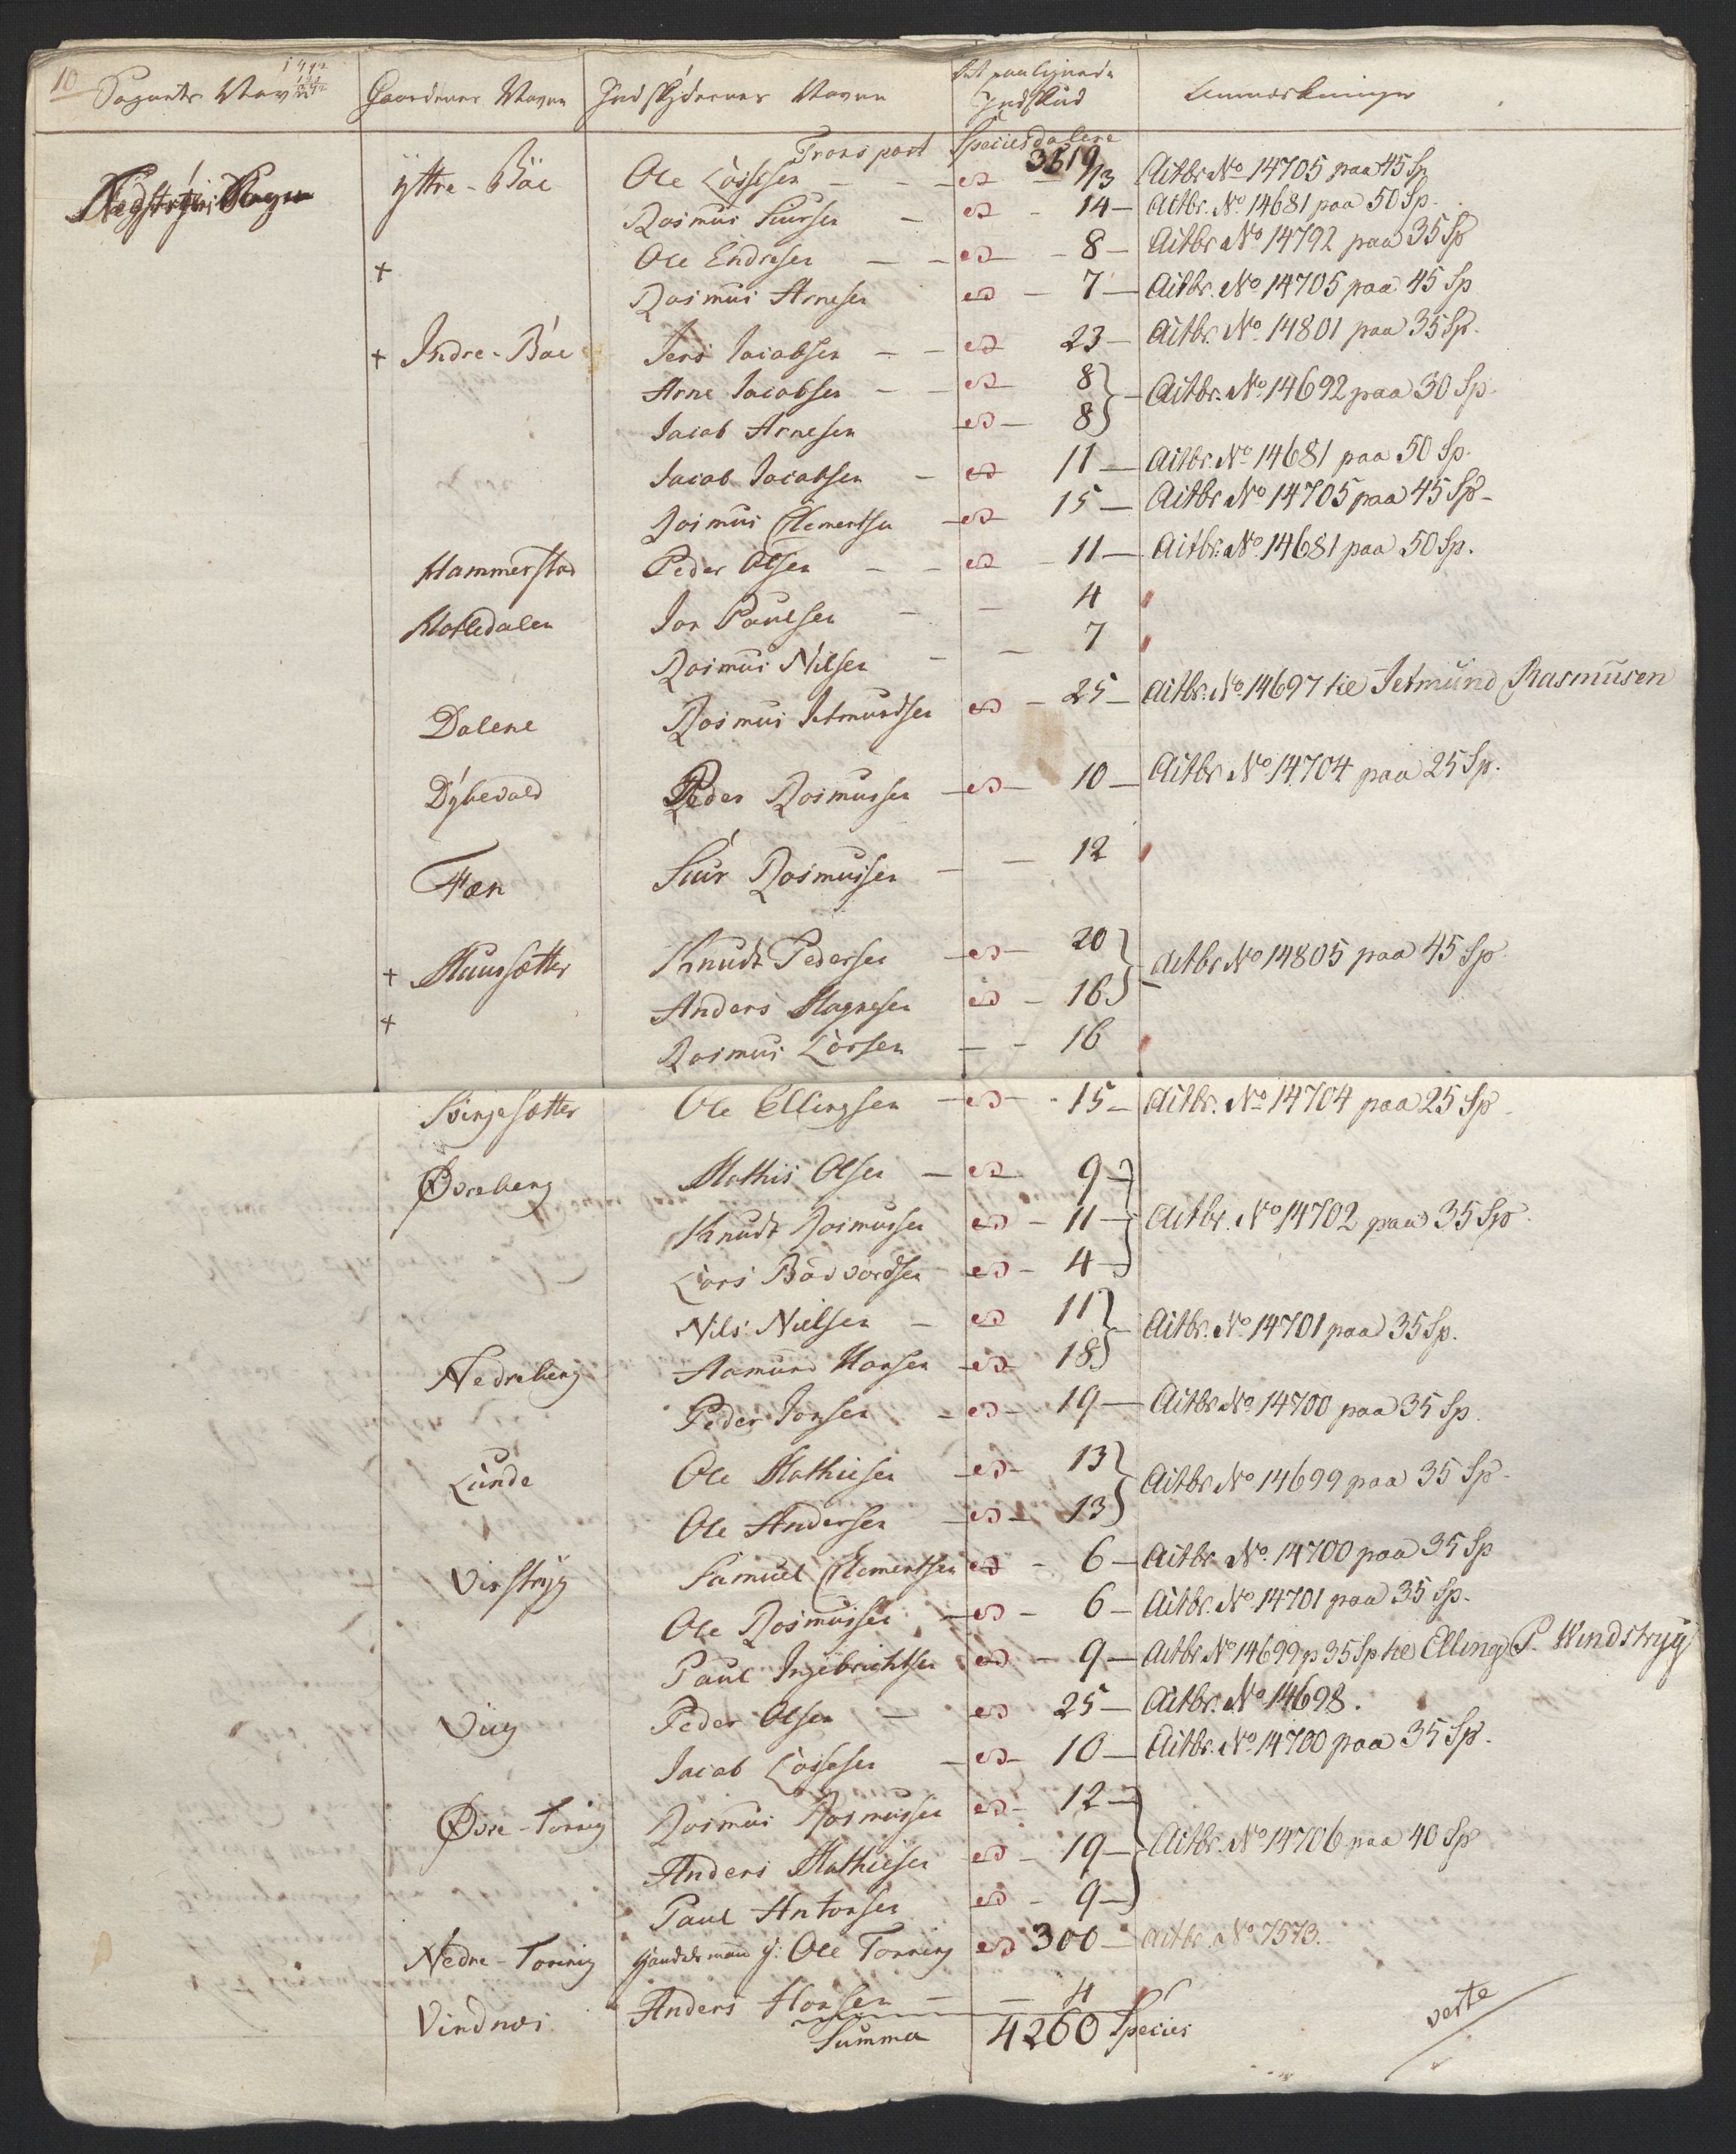 10 Sognets Navn Gaardenes Navne Indskydernes Navne Det paalignede Indskud Anmærkninger
Transport Speciesdalere 3619
Ytre-Böe Ole Larssen - - 13 Actbr No 14705 paa 45 Sp
Rasmus Siursen - 14 - Actbr. No 14681 paa 50 Sp.
Ole Endresen - - 8 - Actbr No 14792 paa 35 Sp
+ Rasmus Arnesen - 7 - Actbr. No 14705 paa 45 Sp
+ Indre-Böe Jens Jacobsen - - 23 - Actbr. No 14801 paa 35 Sp.
Arne Jacobsen - - 8 } Actbr. No 14692 paa 30 Sp.
Jacob Arnesen - 8 }
Jacob Jacobsen - 11 - Actbr. No 14681 paa 50 Sp.
Rasmus Clementsen - 15 - Actbr No 14705 paa 45 Sp -
Hammerstad Peder Olsen - - 11 - Actbr. No 14681 paa 50 Sp.
Jon Paulsen - - 4
Rasmus Nilsen - - 7
Dalene Rasmus Jetmundsen - 25 - Actbr. No 14697 Jetmund Rasmusen
Dybevald Peder Rasmussen - 10 - Actbr No 14704 paa 25 Sp.
Fæn Siur Rasmussen - - 12
+ Muusætter Knudt Pedersen - 20 } Actbr No 14805 paa 45 Sp
Anders Magnesen - 16 }
+ Rasmus Larsen - - 16
Svingesætter Ole Ellingsen - 15 - Actbr. No 14704 paa 25 Sp
Øvreberg Mathis Olsen - 9 }
Knudt Rasmussen - 11 } Actbr. No 14702 paa 35 Sp.
Lars Baardsen - 4 }
Nils Nielsen - 11 } Actbr. No 14701 paa 35 Sp.
Nedreberg Aamund Hansen - 18 }
Peder Jonsen - 19 - Actbr No 14700 paa 35 Sp.
Lunde Ole Mathiesen - 13 } Actbr No 14699 paa 35 Sp.
Ole Andersen - 13 }
Vinstryg Samuel Clementsen - 6 - Actbr. No. 14700 paa 35 Sp
Ole Rasmussen - 6 - Actbr. No 14701 paa 35 Sp.
Paul Ingebrichtsen - 9 - Actbr No 14699 p 35 Sp Elling P. Windstryg
Viig Peder Olsen - 25 - Actbr. No 14698.
Jacob Larssen - 10 - Actbr. No 14700 paa 35 Sp.
Øvre-Tonning Rasmus Rasmussen - 12 }
Anders Mathiesen - 19 } Actbr. No 14706 paa 40 Sp
Paul Antonsen - 9 }
Nedre-Tonning Ole Tonning 300 - Actbr. No 7573.
Vindnæs Anders Hansen - - 4
Summa 4260 Species
verte